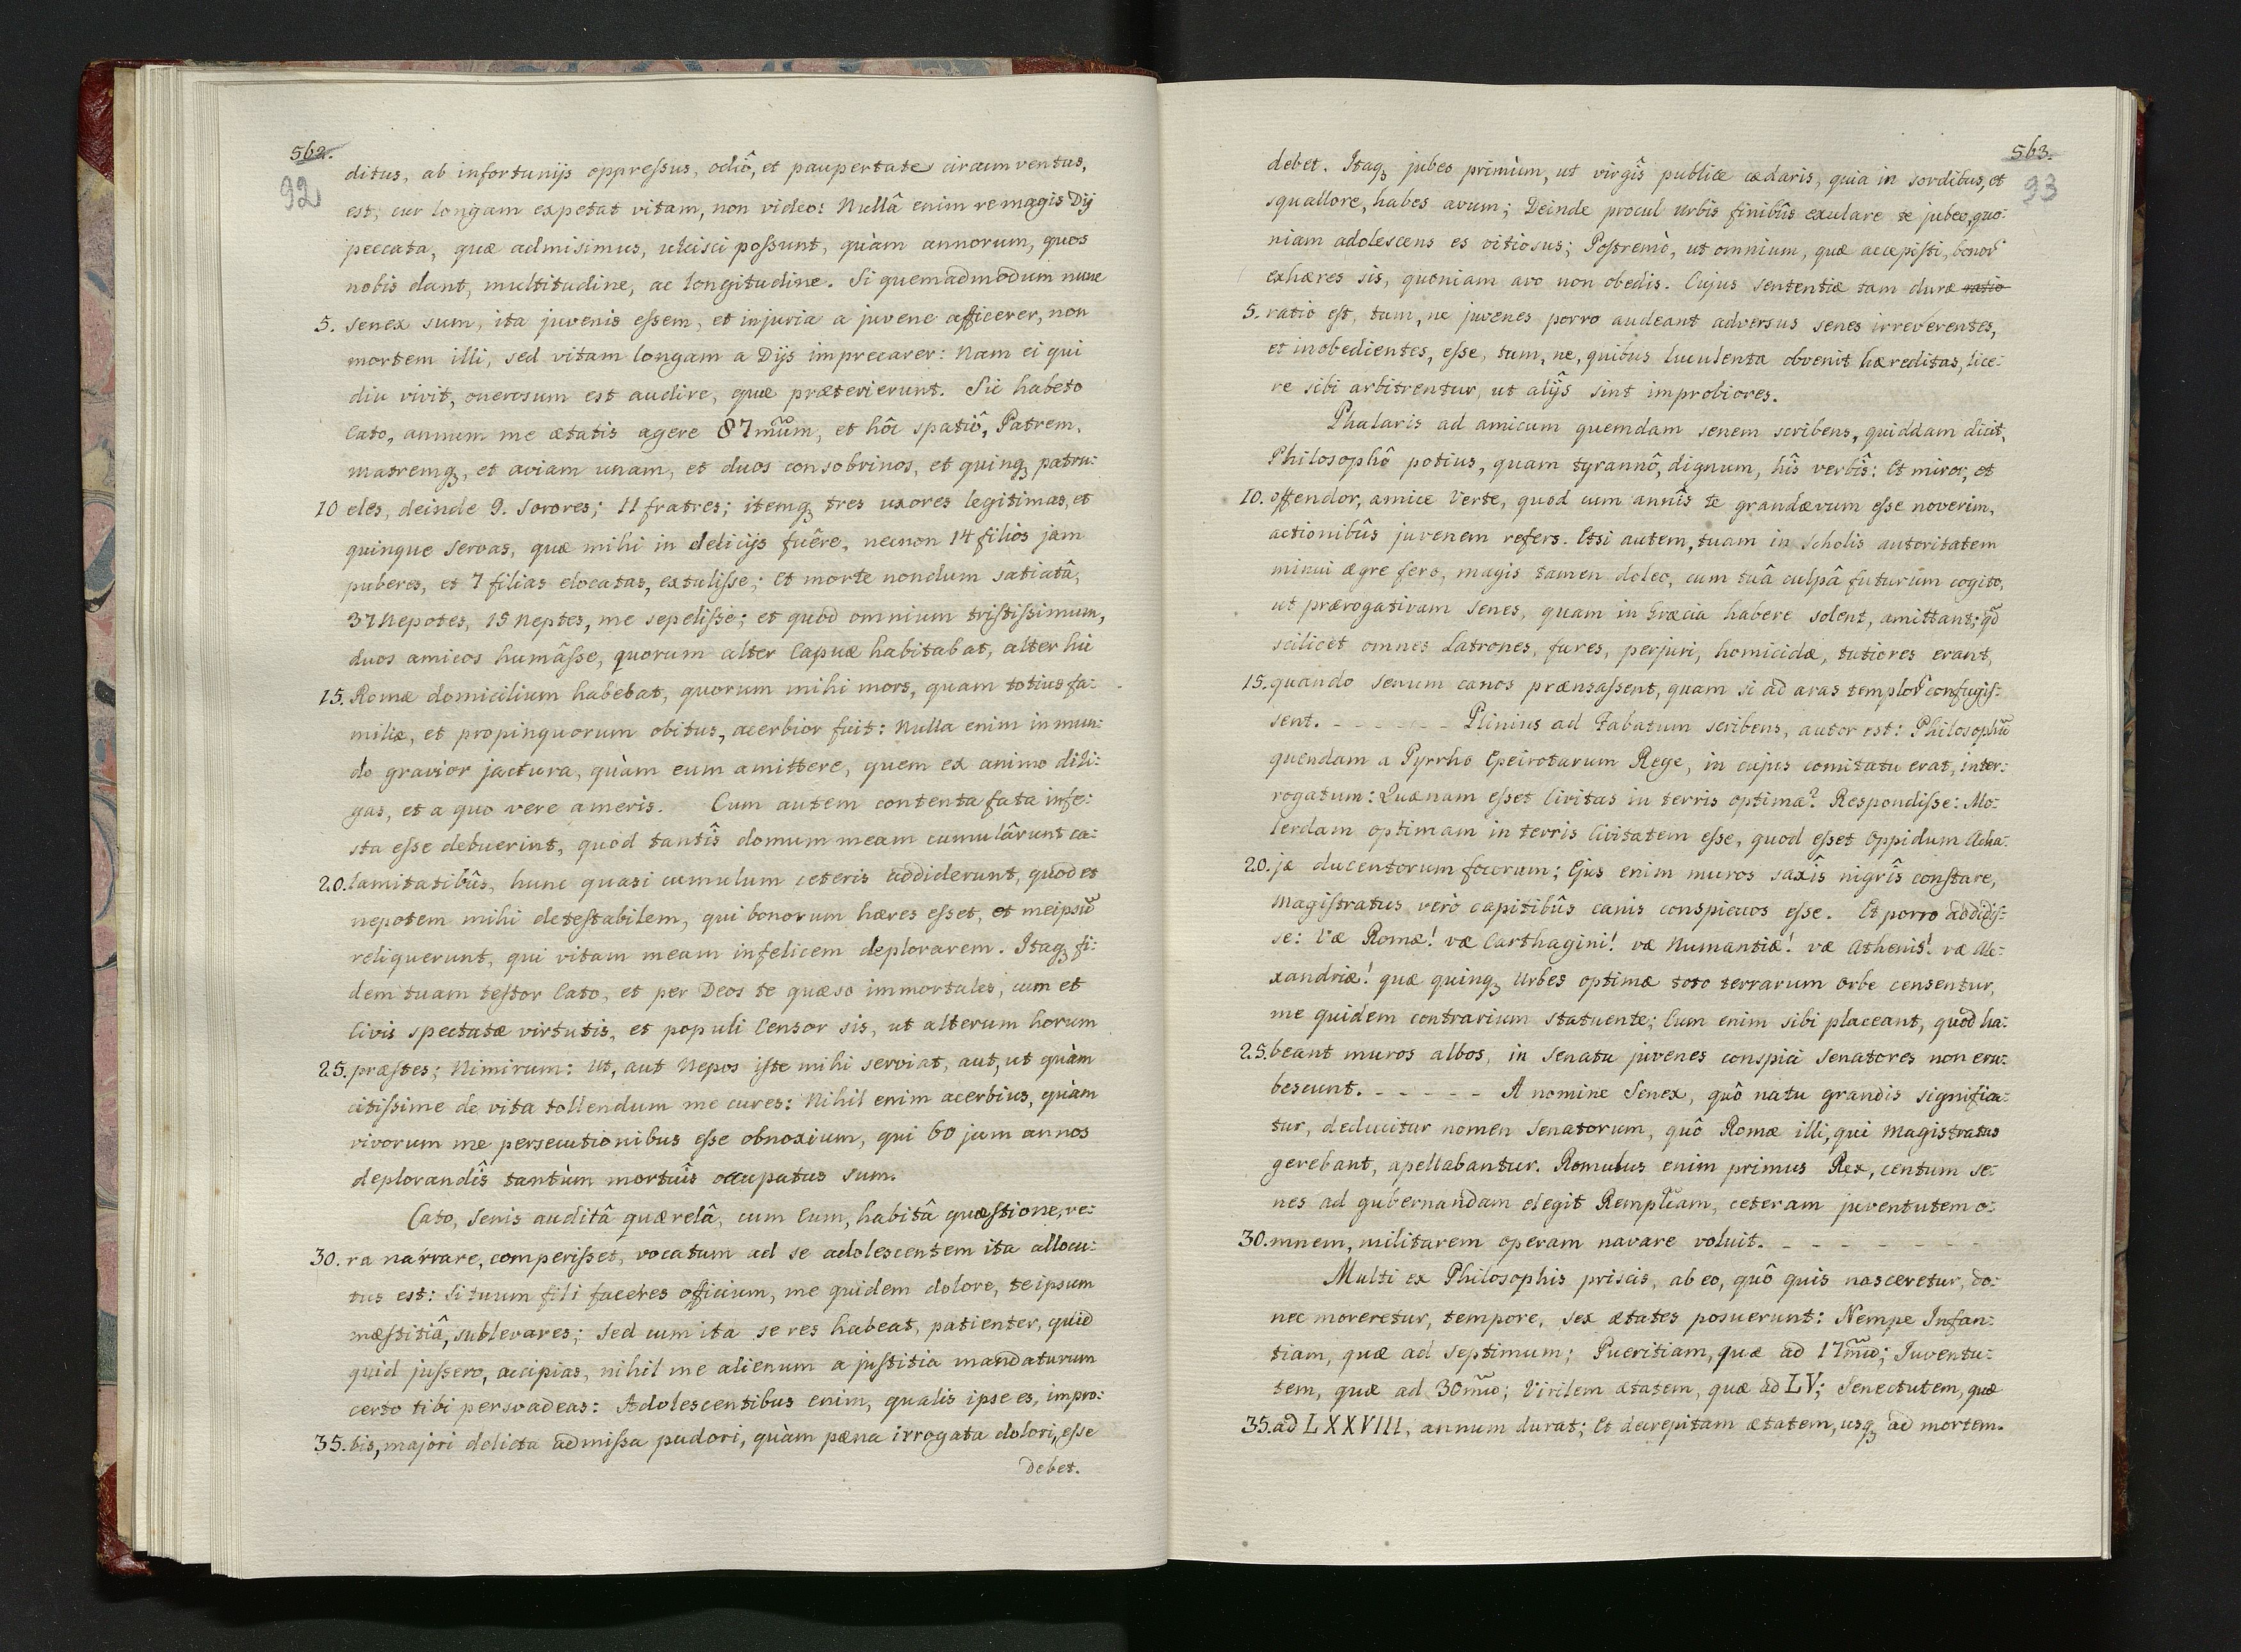 562.
92
ditus, ab infortunijs oppressus, odiô, et paupertate circumventus,
est; cur longam expetat vitam, non video: Nullâ enim re magis Dij
peccata, quæ admisimus, ulcisci possunt, quàm annorum, quos
nobis dant, multitudine, ac longitudine. Si quemadmodum nunc
5. senex sum, ita juvenis essem, et injuria a juvene afficerer, non
mortem illi, sed vitam longam a Dijs imprecarer: Nam ei qui
diu vivit, onerosum est audire, quæ præterierunt. Sic habeto
Cato, annum me ætatis agere 87mũm, et hôc spatiô, Patrem,
matremq3, et aviam unam, et duos consobrinos, et quinq3 patru:
10 eles, deinde 9. sorores; 11 fratres; itemq3 tres uxores legitimas, et
quinque servas, quæ mihi in delicijs fuêre, necnon 14 filios jam
puberes, et 7 filias elocatas, extulisse; Et morte nondum satiatâ,
37 Nepotes, 15 Neptes, me sepelisse; et quod omnium tristissimum,
duos amicos humâsse, quorum alter Capuæ habitabat, alter hic
15. Romæ domicilium habebat, quorum mihi mors, quam totius fa:
miliæ, et propinquorum obitus, acerbior fuit: Nulla enim in mun:
do gravior jactura, quàm eum amittere, quem ex animo dili:
gas, et a quo vere ameris. Cum autem contenta fata infe:
sta esse debuerint, quod tantîs domum meam cumulârunt ca:
20. lamitatibûs, hunc quasi cumulum ceteris addiderunt, quod et
nepotem mihi detestabilem, qui bonorum hæres esset, et meipsũ
reliquerunt, qui vitam meam infelicem deplorarem. Itaq3 fi:
dem tuam testor Cato, et per Deos te quæso immortales, cum et
Civis spectatæ virtutis, et populi Censor sis, ut alterum horum
25. præstes; Nimirum: Ut, aut Nepos iste mihi serviat, aut, ut quàm
citissime de vita tollendum me cures: Nihil enim acerbius, quàm
vivorum me persecutionibus esse obnoxium, qui 60 jam annos
deplorandîs tantùm mortuîs occupatus sum.
Cato, Senis auditâ quærelâ, cum Eum, habitâ quæstione, ve:
30. ra narrare, comperisset, vocatum ad se adolescentem ita allocu:
tus est: Si tuum fili faceres officium, me quidem dolore, te ipsum
mæstitiâ, sublevares; Sed cum ita se res habeat, patienter, quid
quid jussero, accipias, nihil me alienum a justitia mandaturum
certo tibi persvadeas: Adolescentibus enim, qualis ipse es, impro:
35. bis, majori delicta admissa pudori, quàm pæna irrogata dolori, esse
debet.
563.
93
debet. Itaq3 jubeo primùm, ut virgîs publice cædaris, quia in sordibus, et
squallore, habes avum; Deinde procul urbis finibûs exulare te jubeo, quo:
niam adolescens es vitiosus; Postremò, ut omnium, quæ accepisti, bonor̃
exhæres sis, quoniam avo non obedis. Cujus sententiæ tam duræ ratio
5. ratio est, tum, ne juvenes porro audeant adversus senes irreverentes,
et inobedientes, esse, tum, ne, quibus luculenta obvenit hæreditas, lice:
re sibi arbitrentur, ut alijs sint improbiores.
Phalaris ad amicum quemdam senem scribens, quiddam dicit,
Philosophô potius, quam tyrannô, dignum, hîs verbîs: Et miror, et
10. offendor, amice Verte, quod cum annîs te grandævum esse noverim,
actionibûs juvenem refers. Etsi autem, tuam in Scholis autoritatem
minui ægre fero, magis tamen doleo, cum tuâ culpâ futurum cogito,
ut prærogativam Senes, quam in Græcia habere solent, amittant; qd̃
scilicet omnes Latrones, fures, perjuri, homicidæ, tutiores erant,
15. quando senum canos prænsassent, quam si ad aras templor̃ confugis:
sent. - - - - - - - Plinius ad Fabatum scribens, autor est: Philosophũ
quendam a Pyrrho Epeirotarum Rege, in cujus comitatu erat, inter:
rogatum: Quænam esset Civitas in terris optima? Respondisse: Mo:
lerdam optimam in terris Civitatem esse, quod esset Oppidum Acha:
20. jæ ducentorum focorum; Ejus enim muros saxîs nigrîs constare,
Magistratus verò capitibûs canis conspicuos esse. Et porro addidis:
se: Væ Romæ! væ Carthagini! væ Numantiæ! væ Athenis! væ Ale:
xandriæ! quæ quinq3 Urbes optimæ toto terrarum Orbe censentur,
me quidem contrarium statuente; Cum enim sibi placeant, quod ha:
25. beant muros albos, in Senatu juvenes conspici Senatores non eru:
bescunt. - - - - - A nomine Senex, quô natu grandis significa:
tur, deducitur nomen Senatorum, quô Romæ illi, qui Magistratus
gerebant, apellabantur. Romulus enim primus Rex, centum Se:
nes ad gubernandam elegit Remplĩcam, ceteram juventutem o:
30. mnem, militarem operam navare voluit. - - - - - - - -
Multi ex Philosophis priscis, ab eo, quô quis nasceretur, do:
nec moreretur, tempore, sex ætates posuerunt: Nempe Infan:
tiam, quæ ad septimum; Pueritiam, quæ ad 17mũ; Juventu:
tem, quæ ad 30mũ; Virilem ætatem, quæ ad LV; Senectutem, quæ
35. ad LXXVIII, annum durat; Et decrepitam ætatem, usq3 ad mortem.